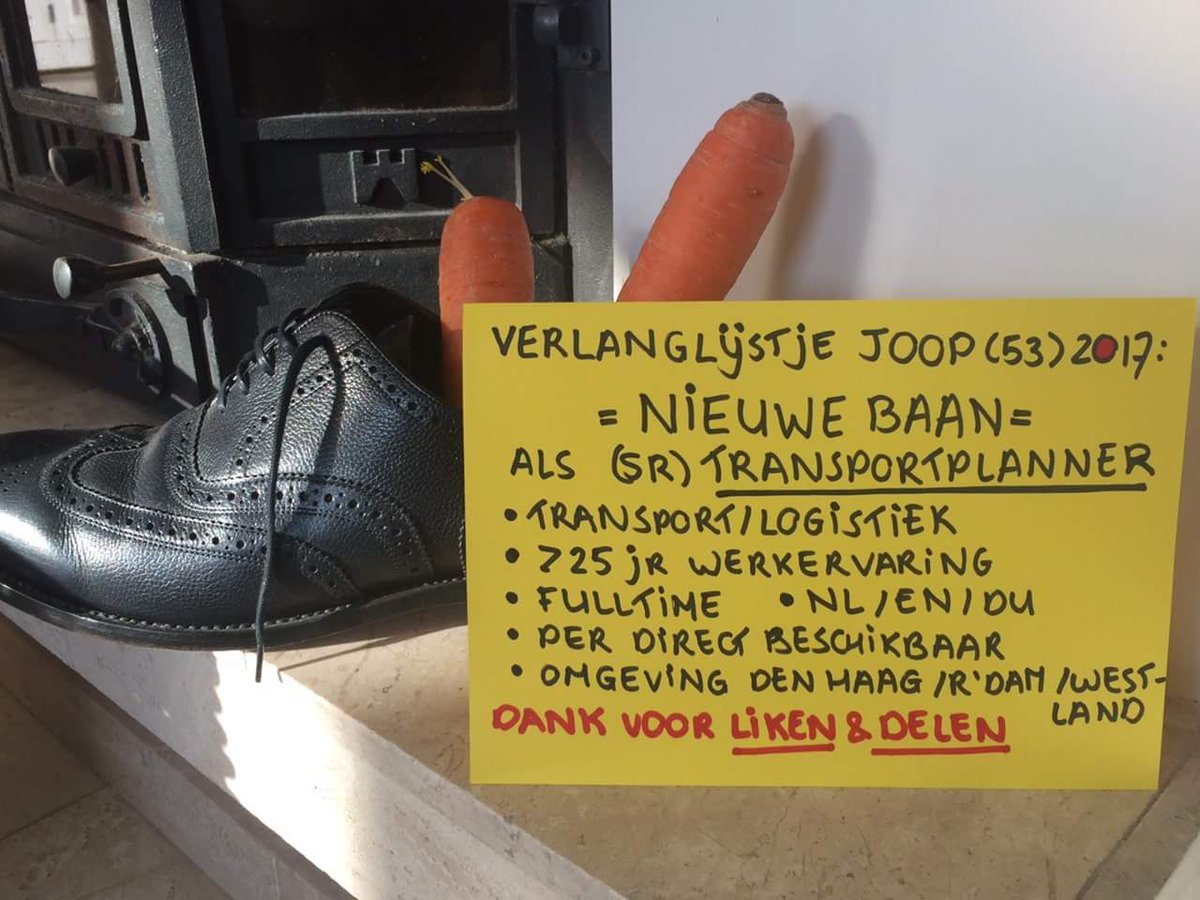 VERLANGLIJSTJE JOOP (53) 2017:
= NIEUWE BAAN =
ALS (SR) TRANSPORTPLANNER
• TRANSPORT/LOGISTIEK
• >25 JR WERKERVARING
• FULLTIME • NL/EN/DU
• PER DIRECT BESCHIKBAAR
• OMGEVING DEN HAAG/R'DAM/WEST-
LAND
DANK VOOR LIKEN & DELEN